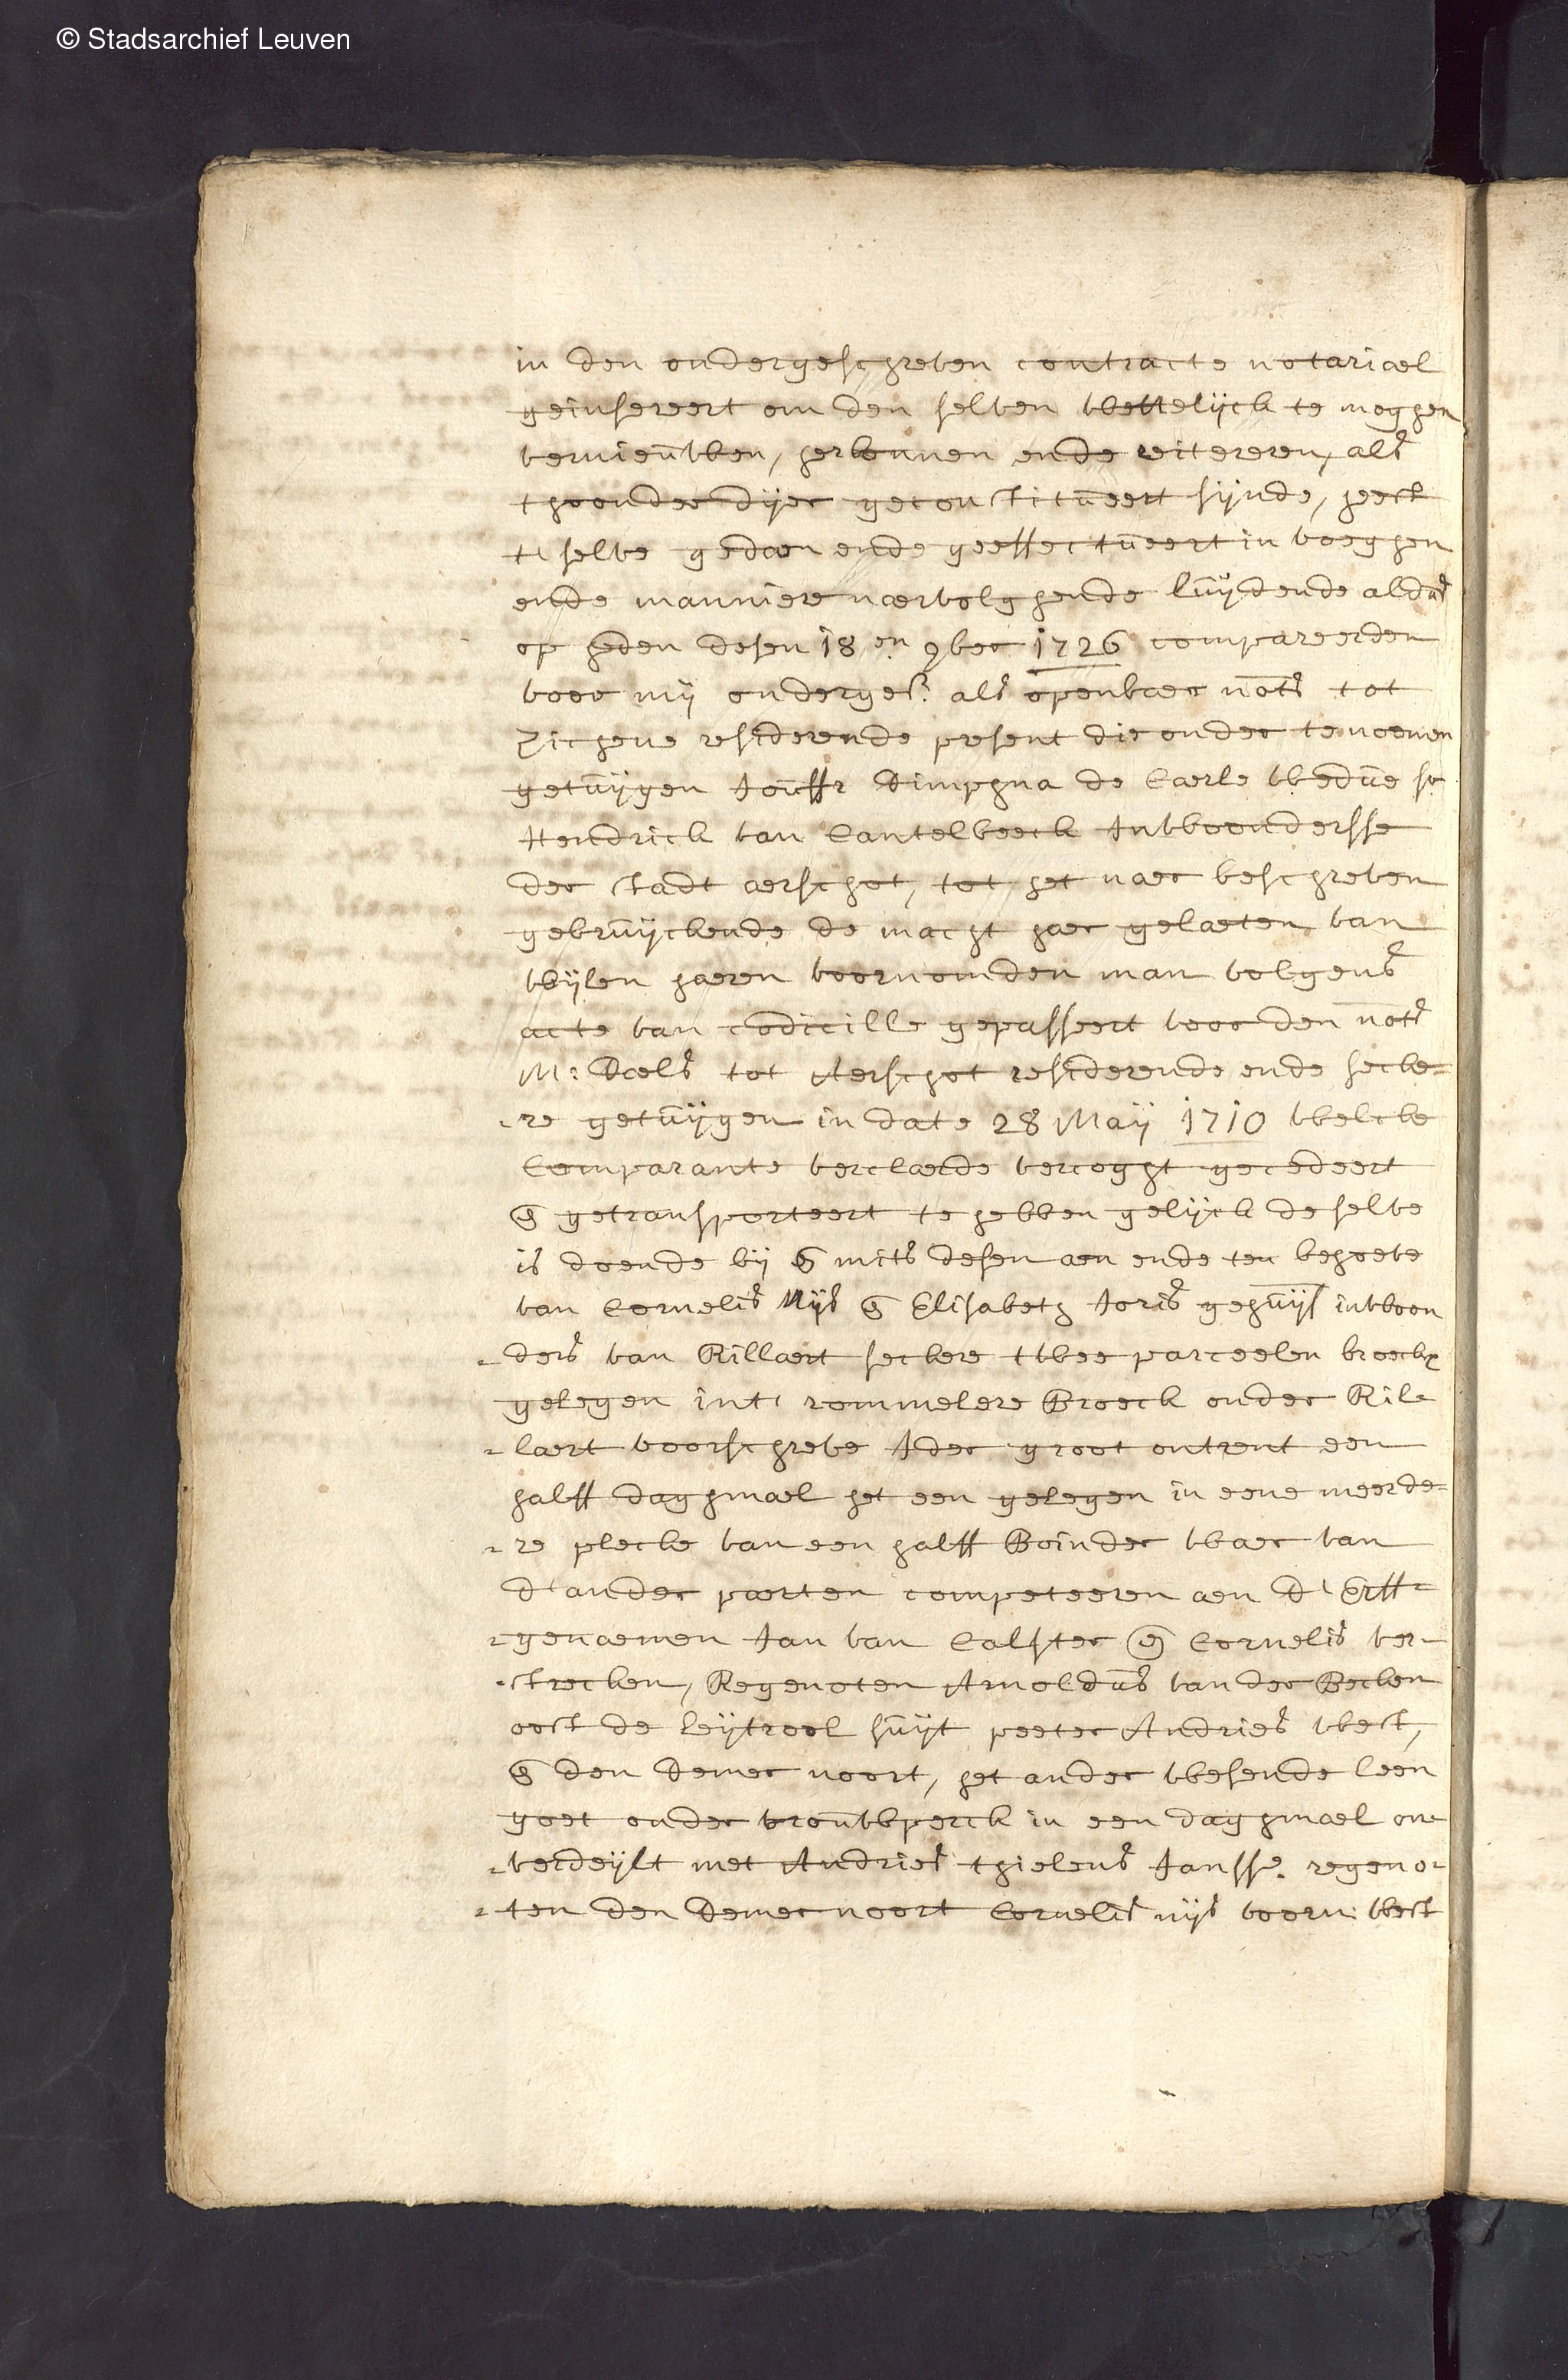 © Stadsarchief Leuven
in den ondergeschreven contracte notariael
geinsereert om den selven wettelijck te mogghen
vernieuwen, herkennen ende reitereren, als
thoonder dijer geconstitueert sijnde, heeft
tselve gedaen ende geeffectueert in voeghen
ende manniere naervolghende luijdende aldus
op heden desen 18en 9ber 1726 compareerden
voor mij onderges: als openbaer nots tot
Zichene residerende present die onder te noemen
getuijgen Jouffr Dimphna de Caerle weduwe sr
Hendrick van Cantelbeeck Inwoondersse
der stadt aerschot, tot het naer beschreven
gebruijckende de macht haer gelaeten van
wijlen haeren voornomden man volgens
acte van codicille gepasseert voor den nots
M: Daels tot Aerschot residerende ende secke=
-re getuijgen in date 28 Maij 1710 welcke
Comparante verclaerde vercoght gecedeert
en getransporteert te hebben gelijck de selve
is doende bij en mits desen aen ende ten behoeve
van Cornelis Nijs en Elisabeth Joris gehuijs inwoon
-ders van Rillaert seckere twee parceelen broeckx
gelegen int rommelere Broeck onder Ril=
=laert voorschreve Ider groot ontrent een
halff daghmael het een gelegen in eene meerde=
=re plecke van een halff Boinder waer van
d'ander paerten competeeren aen d'Erff=
=genaemen Jan van Calster en Cornelis ver-
-strecken, Regenoten Arnoldus vander Becken
oost de leijtrool suijt peeter Andries west,
en den demer noort, het ander wesende leen
goet onder brouwperck in een daghmael on=
=verdeijlt met Andries thielens Jansse. regeno=
=ten den Demer noort Cornelis nijs voorn: west